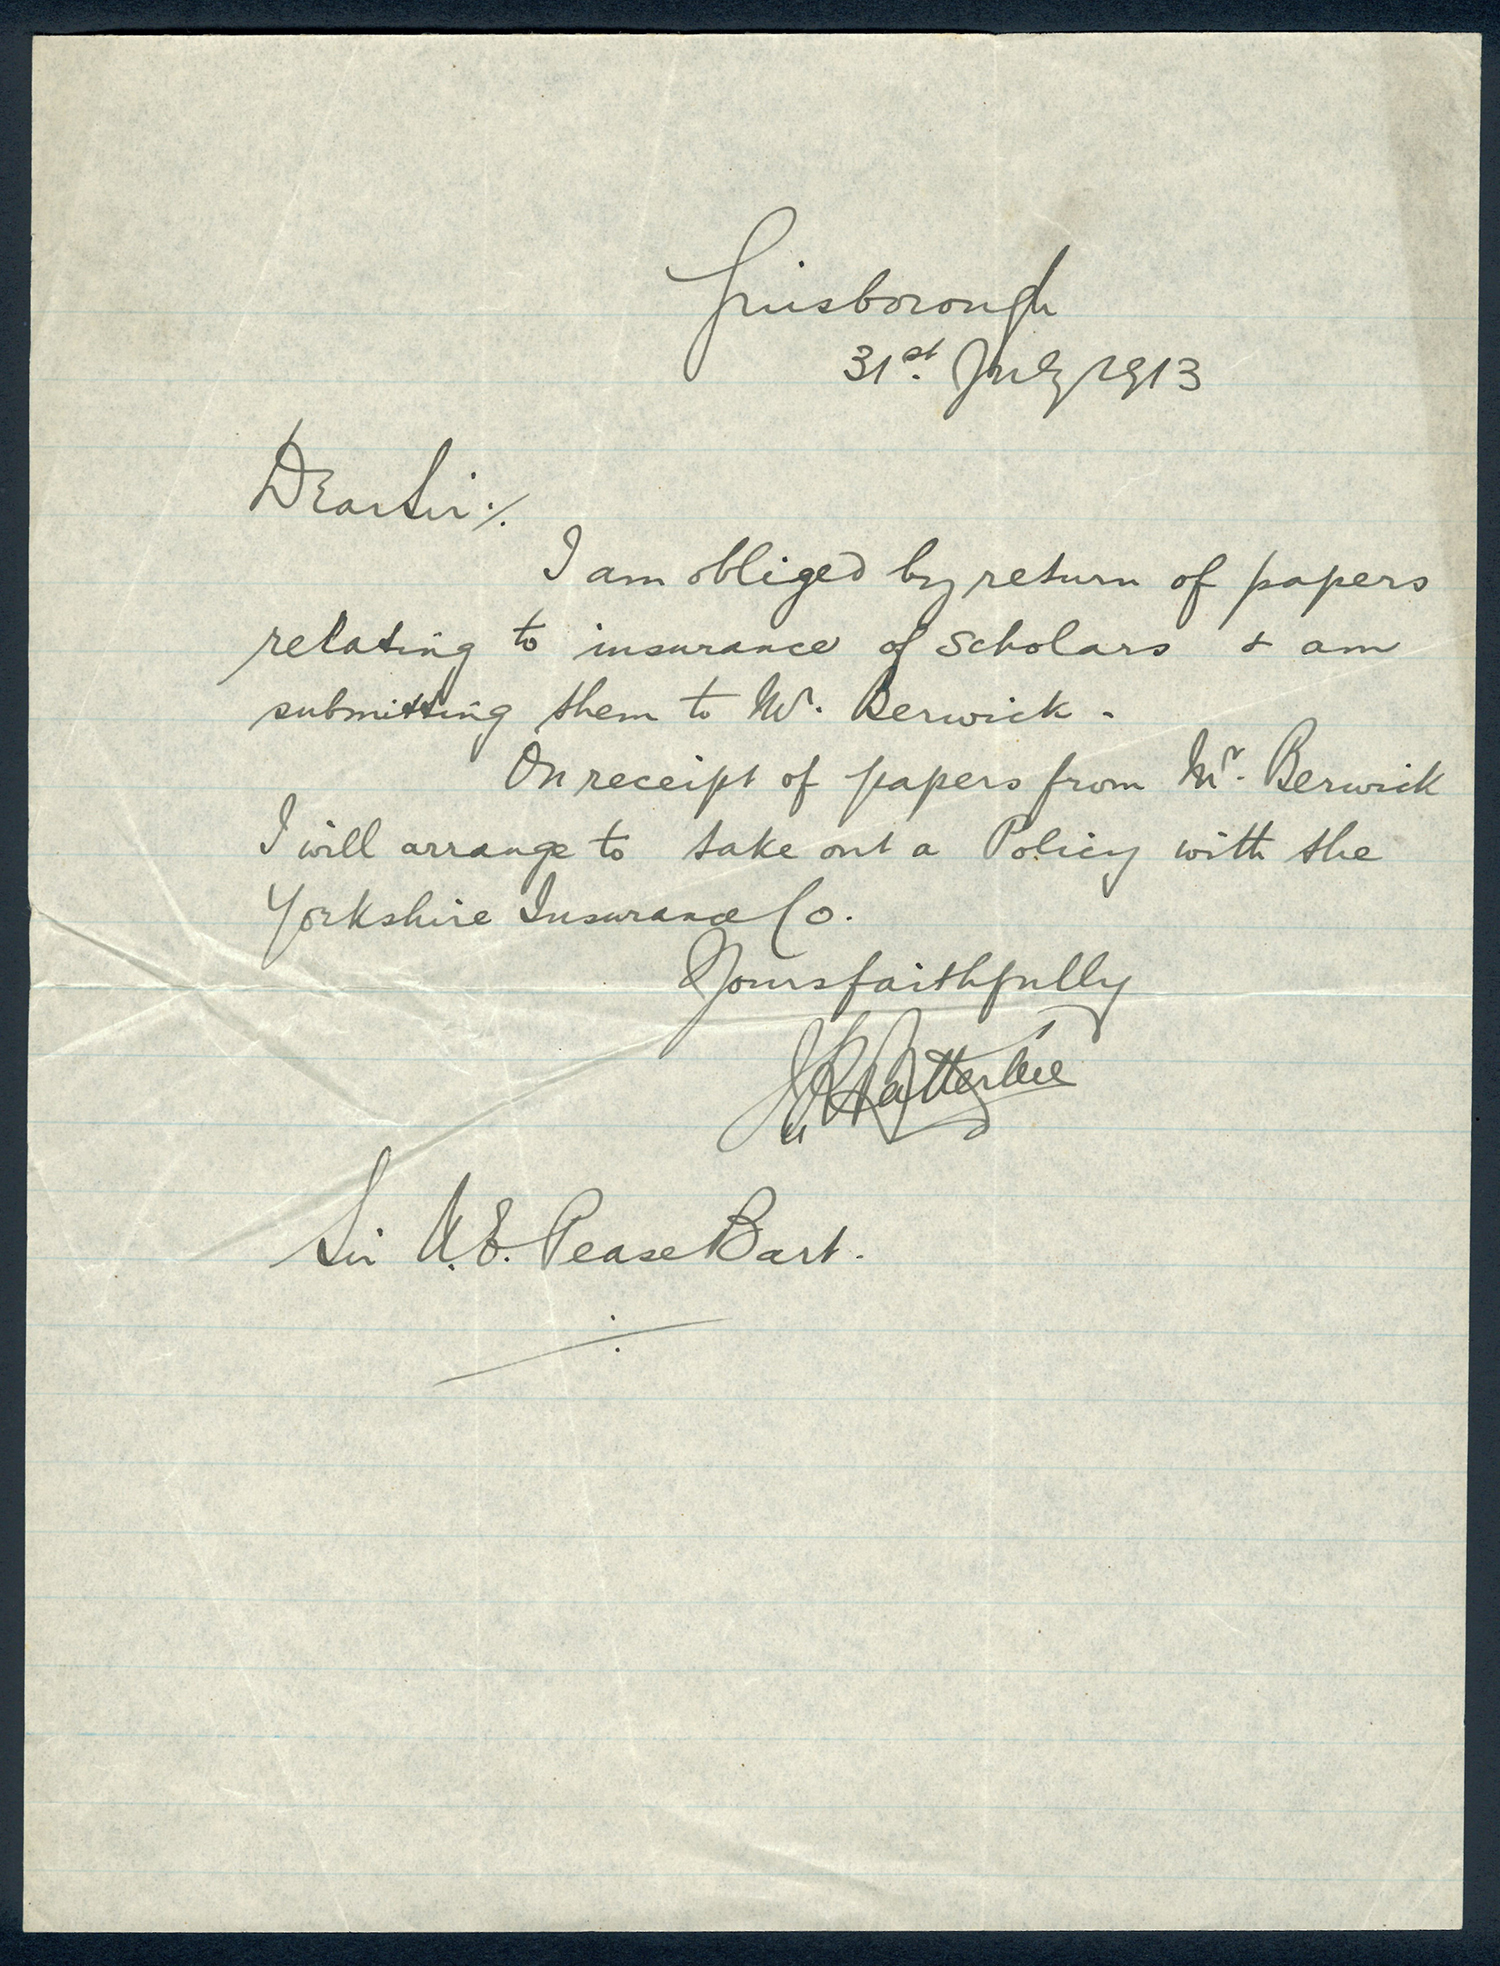 Guisborough
31st. July 1913
Dear Sir :/.
I am obliged by return of papers
relating to insurance of scholars & am
submitting them to Mr. Berwick.
On receipt of papers from Mr. Berwick
I will arrange to take out a Policy with the
Yorkshire Insurance Co.
Yours faithfully
Sir A. E. Pease Bart.